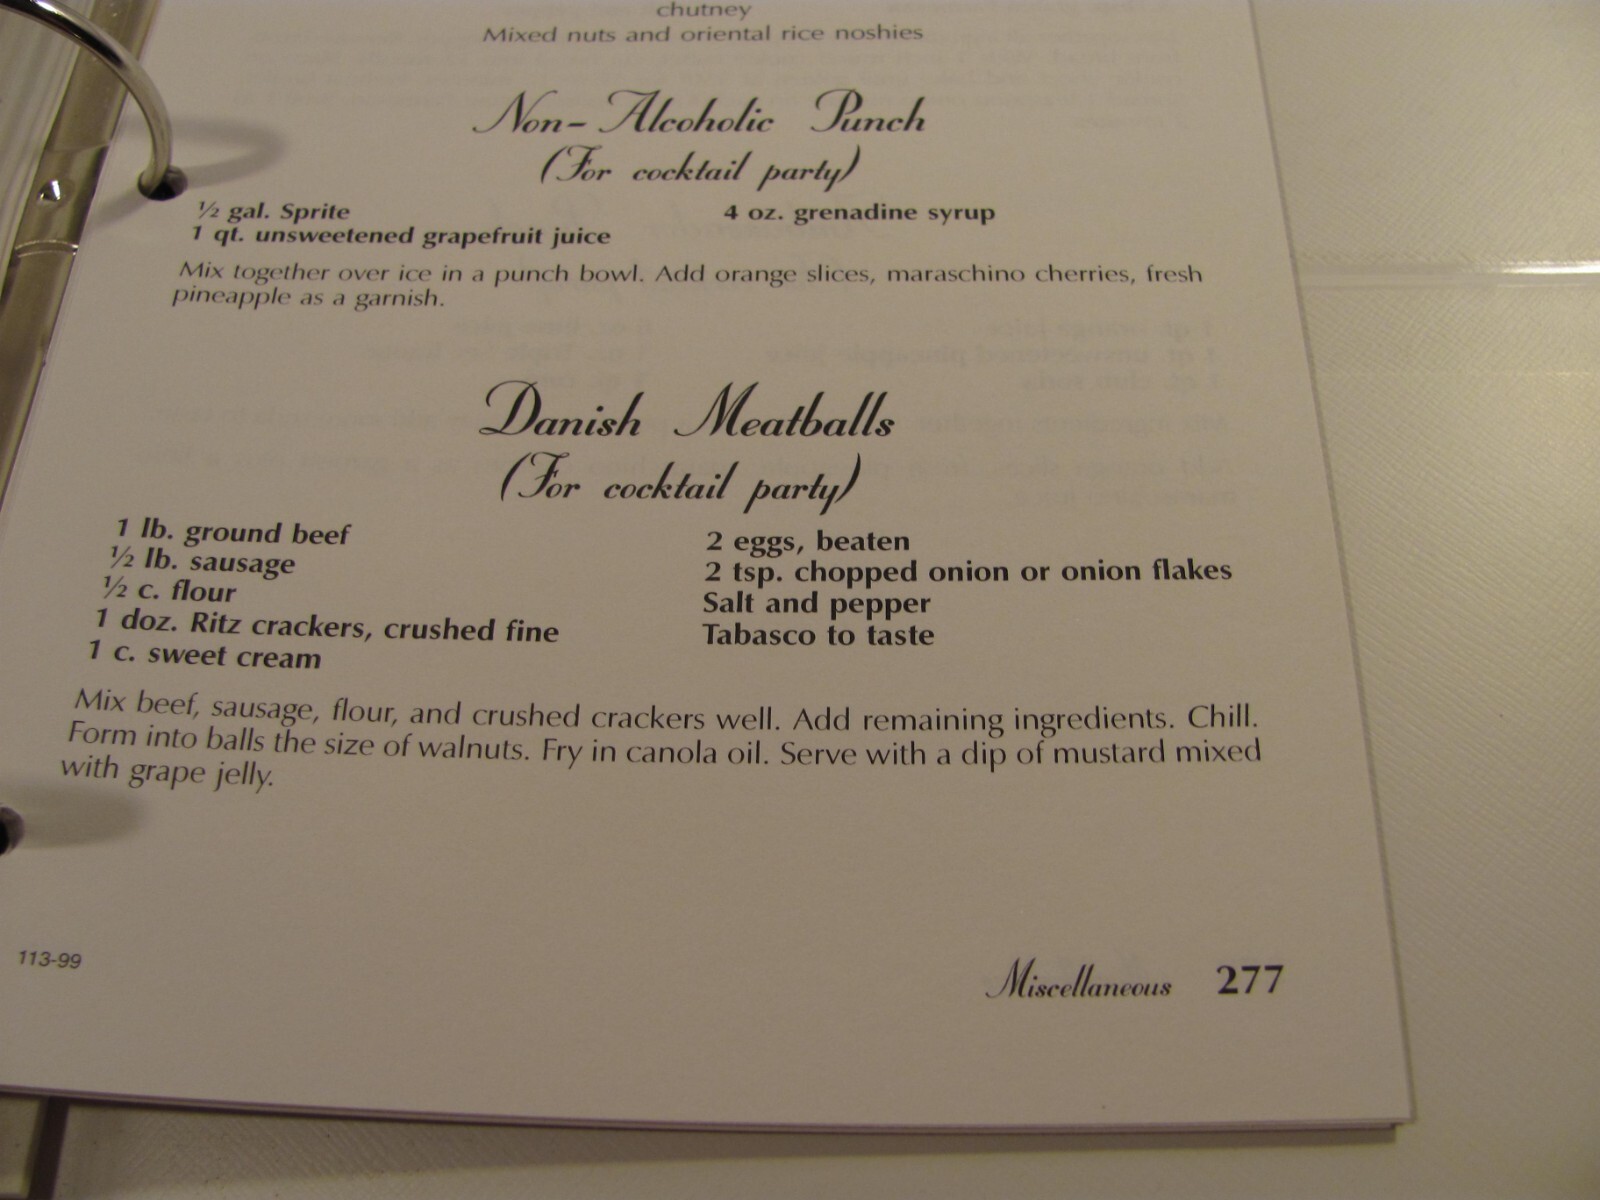 chutney
Mixed nuts and oriental rice noshies
Non-Alcoholic Punch
(For cocktail party)
½ gal. Sprite
1 qt. unsweetened grapefruit juice
4 oz. grenadine syrup
Mix together over ice in a punch bowl. Add orange slices, maraschino cherries, fresh
pineapple as a garnish.
Danish Meatballs
(For cocktail party)
1 lb. ground beef
½ lb. sausage
½ c. flour
1 doz. Ritz crackers, crushed fine
1 c. sweet cream
2 eggs, beaten
2 tsp. chopped onion or onion flakes
Salt and pepper
Tabasco to taste
Mix beef, sausage, flour, and crushed crackers well. Add remaining ingredients. Chill.
Form into balls the size of walnuts. Fry in canola oil. Serve with a dip of mustard mixed
with grape jelly.
113-99
Miscellaneous 277